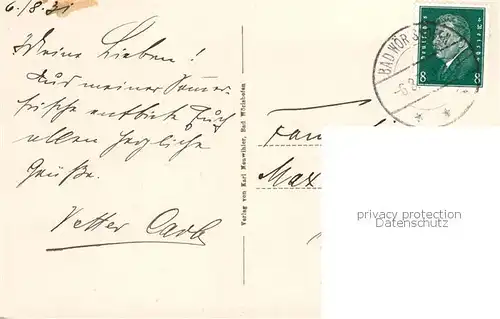 6./8.31
Meine Lieben!
Aus meiner Sommer-
frische entbiete Euch
allen herzliche
Grüße.
Vetter
Verlag von Karl Neuwihler, Bad Wörishofen
BAD WÖRISHOFEN
-6.8.
Deutsches Reich
8 8
Fam
Max
privacy protection
Datenschutz